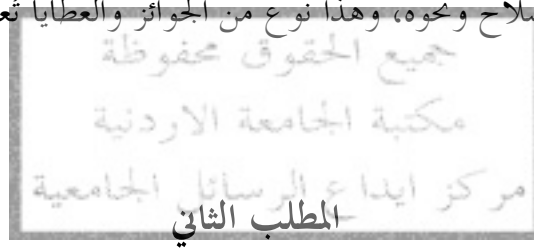 سلاح ونحوه، وهذا نوع من الجوائز والعطايا
جميع الحقوق محفوظة
مكتبة الجامعة الاردنية
مركز ايداع الرسائل الجامعية
المطلب الثاني